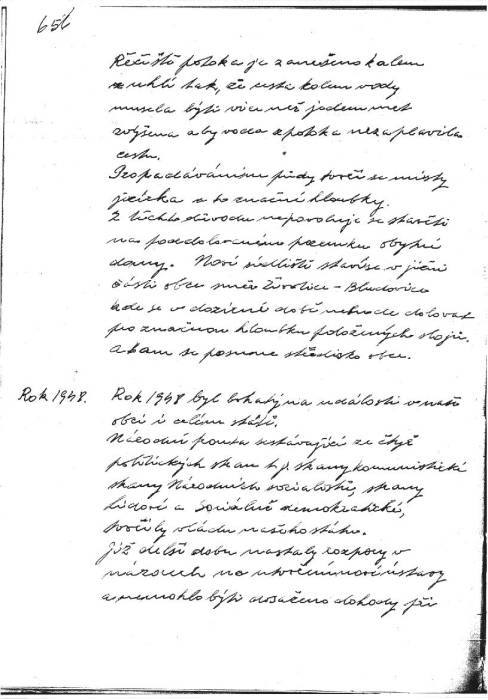 656
Řečiště potoka je zanešeno kalem
z uhlí tak, že cesta kolem vody
musela býti více než jeden met
zvýšena aby voda z potoka nezaplavila
cestu.
Propadáváním půdy tvoří se místy
jezírka a to značné hloubky.
Z těchto důvodu nepovoluje se stavěti
na poddolovaném pozemku obytné
domy. Nové sídliště staví se v jižní
části obce směr Životice - Bludovice
kde se v dozírné době nebude dolovat
pro značnou hloubku položených slojí.
a tam se posune středisko obce.
Rok 1948. Rok 1948 byl bohatý na události v naší
obci i celém státě.
Národní fronta sestávající ze čtyř
politických stran t.j. strany komunistické
strany Národních socialistů, strany
lidové a Sociálně demokratické,
tvořily vládu našeho státu.
Již delší dobu nastaly rozpory v
názorech na utvoření nové ústavy
a nemohlo býti dosaženo dohody při